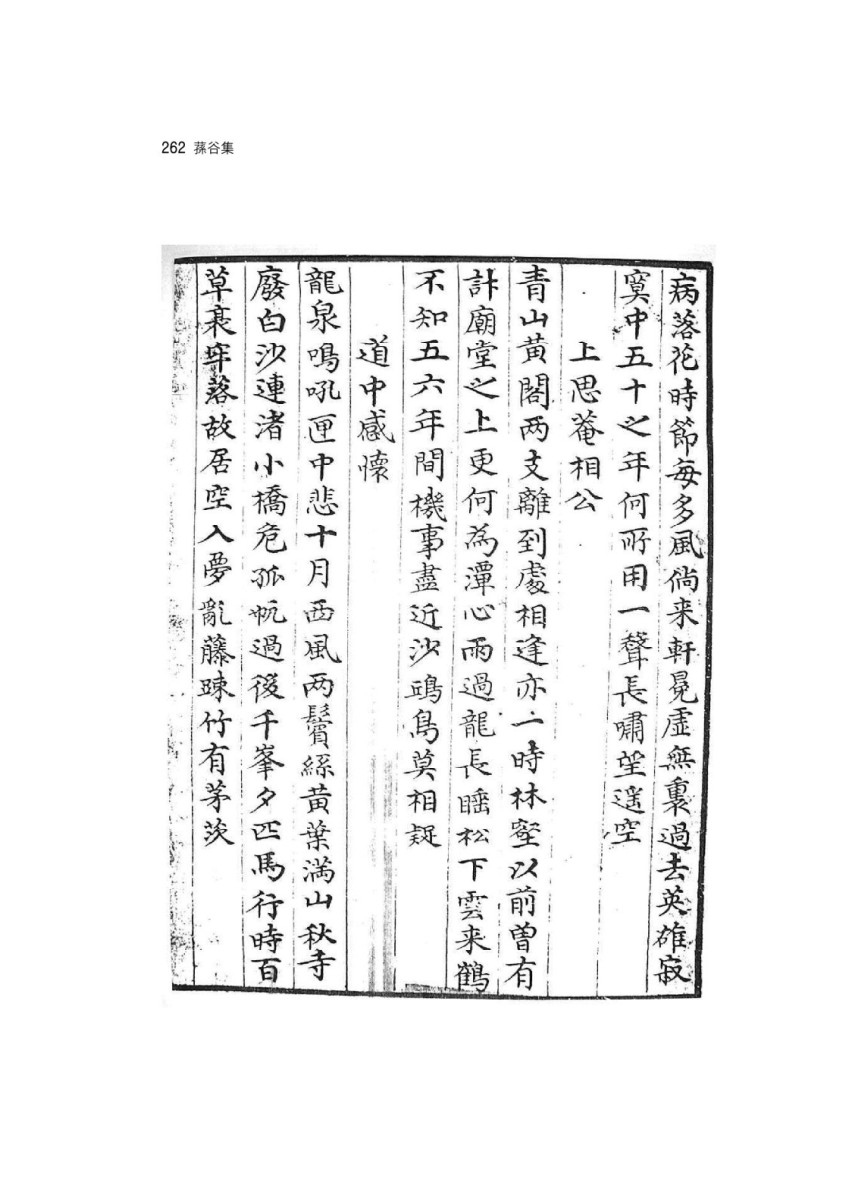 262 蓀谷集
病落花時節每多風倘来軒冕虛無裏過去英雄寂
寞中五十之年何所用一聲長嘯望遥空
上思菴相公
青山黄閣两支離到處相逢亦一時林壑以前曾有
計廟堂之上更何為潭心雨過龍長睡松下雲来鶴
不知五六年間機事盡近沙鷗鳥莫相疑
道中感懷
龍泉鳴吼匣中悲十月西風两鬢絲黄葉满山秋寺
廢白沙連渚小橋危孤帆過後千峯夕匹馬行時百
草衰牢落故居空入夢亂藤踈竹有茅茨